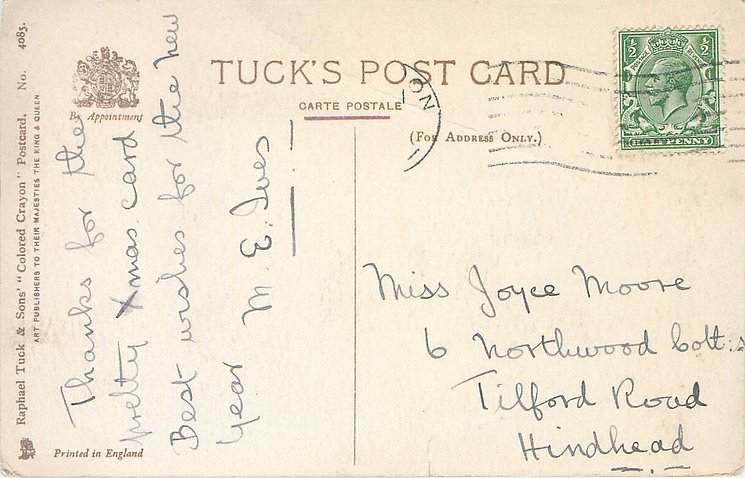 Raphael Tuck & Sons' "Colored Crayon" Postcard. No. 4085.
ART PUBLISHERS TO THEIR MAJESTIES THE KING & QUEEN
By Appointment
TUCK'S POST CARD
CARTE POSTALE
(FOR ADDRESS ONLY.)
ON
½ ½
HALFPENNY
Thanks for the
pretty Xmas card
Best wishes for the new
year M. E. Ives
Miss Joyce Moore
6 Northwood Cott:s
Tilford Road
Hindhead
Printed in England